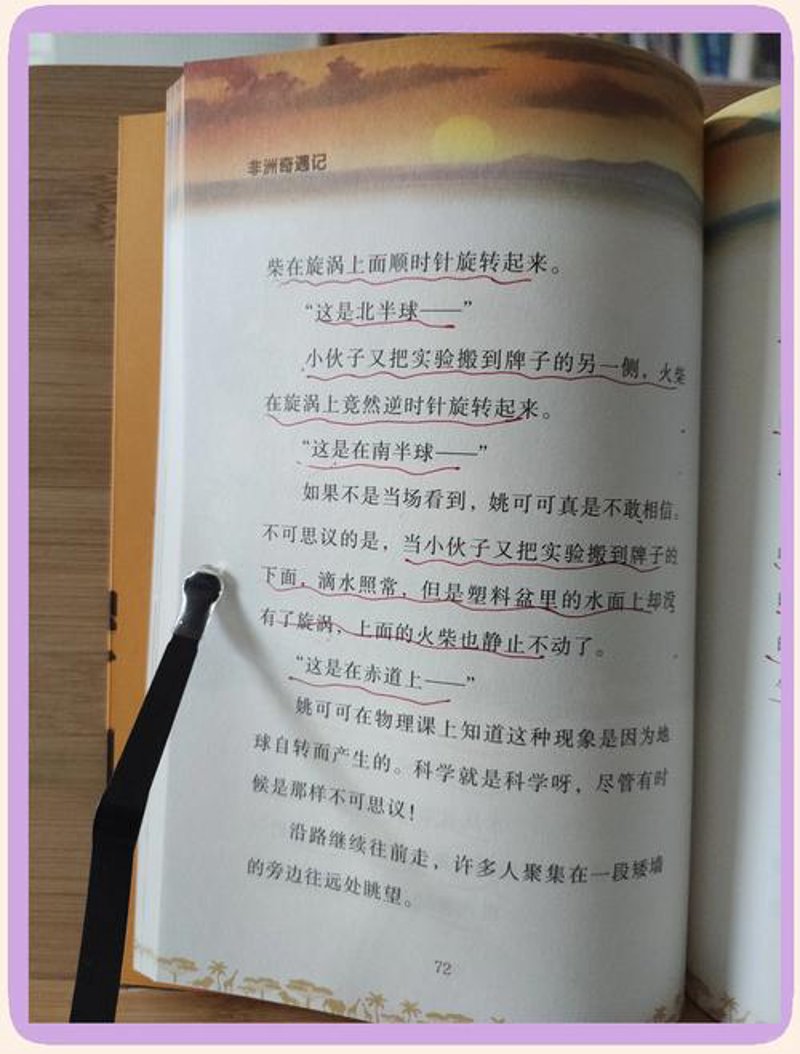 非洲奇遇记
柴在旋涡上面顺时针旋转起来。
“这是北半球——”
小伙子又把实验搬到牌子的另一侧，火柴
在旋涡上竟然逆时针旋转起来。
“这是在南半球——”
如果不是当场看到，姚可可真是不敢相信。
不可思议的是，当小伙子又把实验搬到牌子的
下面，滴水照常，但是塑料盆里的水面上却没
有了旋涡，上面的火柴也静止不动了。
“这是在赤道上——”
姚可可在物理课上知道这种现象是因为地
球自转而产生的。科学就是科学呀，尽管有时
候是那样不可思议！
沿路继续往前走，许多人聚集在一段矮墙
的旁边往远处眺望。
72